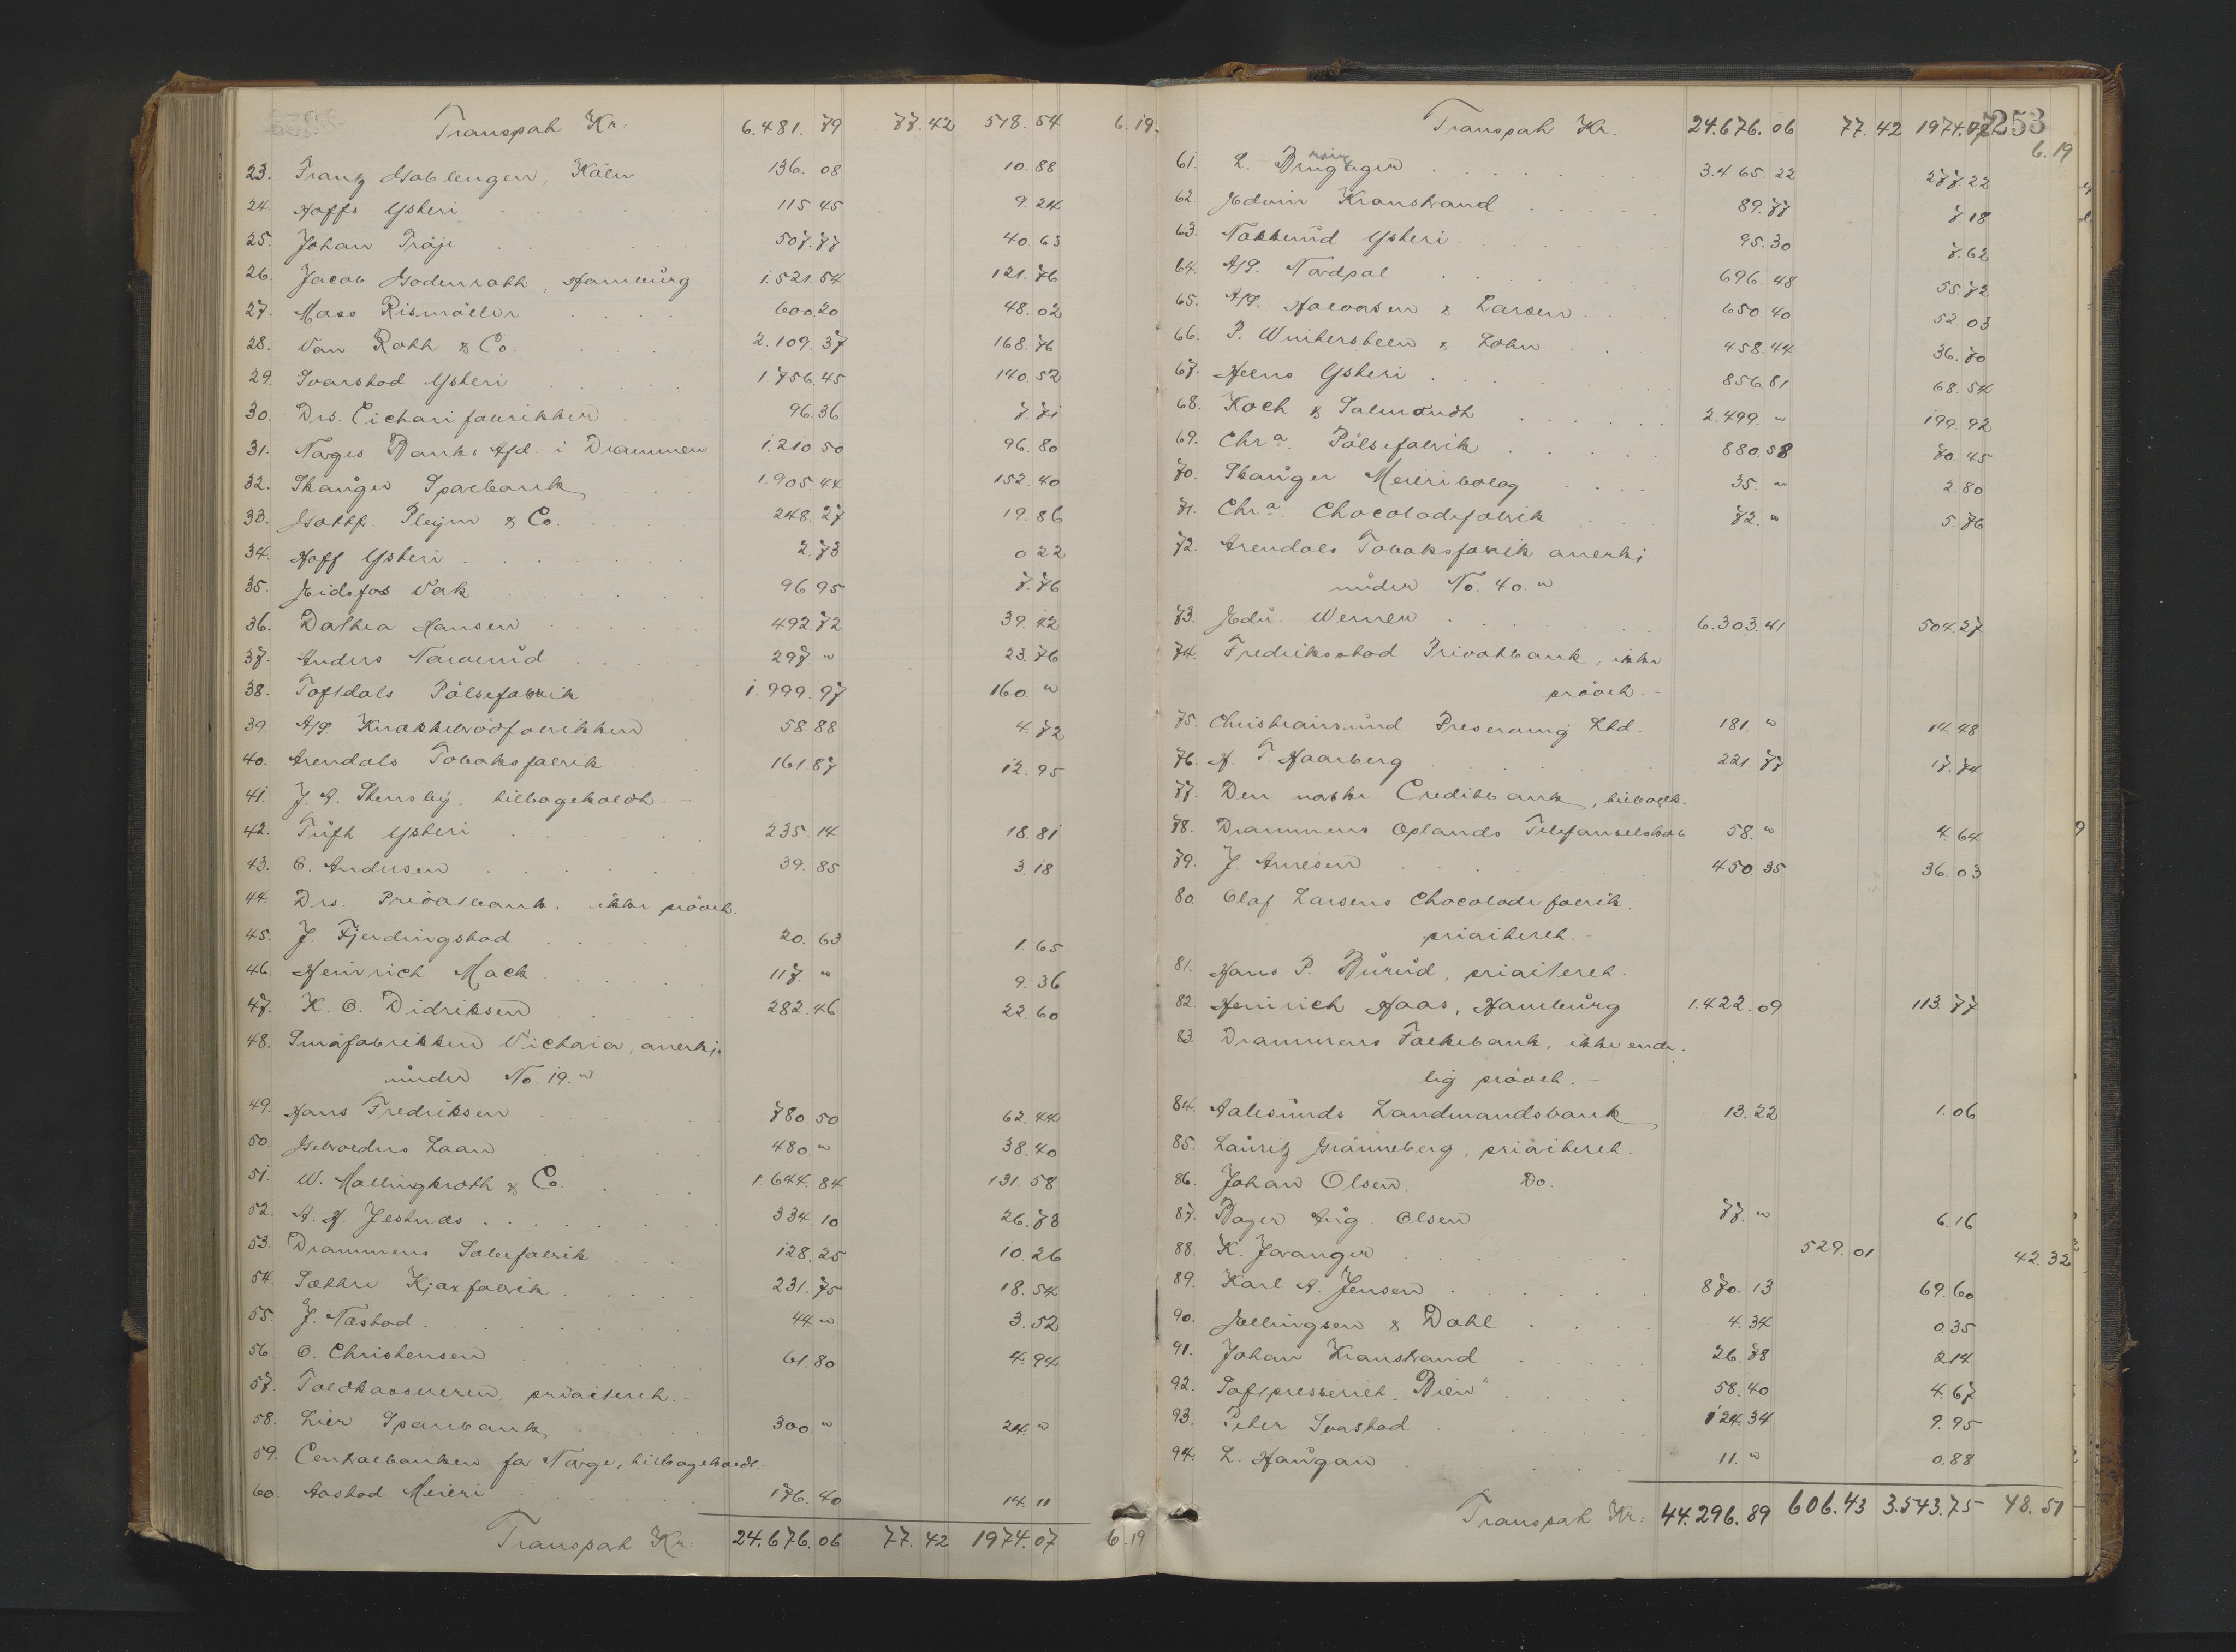 Transport Kr. 6.481.79 77.42 518.54 6.19.
23. Frantz Coblenzer, Köln 136.08 10.88
24. Hoffs Ysteri 115.45 9.24
25. Johan Tröje 507.77 40.63
26. Jacob Godenrath, Hamburg 1.521.54 121.76
27. Mass Rismöller 600.20 48.02
28. Van Roth & Co. 2.109.37 168.76
29. Svarstad Ysteri 1.756.45 140.52
30. Drs. Cichorifabrikker 96.36 7.71
31. Norges Banks Afd. i Drammen 1.210.50 96.80
32. Skauger Sparebank 1.905.44 152.40
33. Gottf. Pleym & Co. 248.27 19.86
34. Hoff Ysteri 2.73 0.22
35. Eidsfos Værk 96.95 7.76
36. Dathea Hansen 492.72 39.42
37. Anders Narverud 297 " 23.76
38. Toftdals Pölsefabrik 1.999.97 160. "
39. A/S. Knækkebrödfabrikken 58.88 4.72
40. Arendals Tobaksfabrik 161.87 12.95
41. J. A. Stensby, tilbagekaldt. -
42. Tuft Ysteri 235.14 18.81
43. C. Andersen 39.85 3.18
44. Drs. Privatbank. ikke prövet.
45. J. Fjerdingstad 20.63 1.65
46. Heinrich Mack 117. " 9.36
47. K. O. Didriksen 282.46 22.60
48. Smörfabrikken Victoria, anerkj.
under No. 19. "
49. Hans Fredriksen 780.50 62.44
50. Gebroeders Laan 480. " 38.40
51. W. Mallingkroth & Co. 1.644.84 131.58
52. A. H. Jestnæs 334.10 26.73
53. Drammens Sæbefabrik 128.25 10.26
54. Sætre Kjæxfabrik 231.75 18.54
55. J. Næstad 44. " 3.52
56. O. Christensen 61.80 4.94
57. Toldkassereren, prioriteret. -
58. Lier Sparebank 300. " 24. "
59. Centralbanken for Norge, tilbagekaldt.
60. Aastad Meieri 176.40 14.11
Transport Kr. 24.676.06 77.42 1974.07 6.19
253
Transport Kr. 24.676.06 77.42 1974.07 6.19
61. L. 3.465.22 277.22
62. Edvin Kranstrand 89.77 7.18
63. Nakkerud Ysteri 95.30 7.62
64. A/S. Nordpol 696.48 55.72
65. A/S. Halvorsen & Larsen 650.40 52.03
66. P. Wintersteen & Sohn 458.44 36.70
67. Heens Ysteri 856.81 68.54
68. Koch & Salmondt 2.499. " 199.92
69. Chr.a Pölsefabrik 880.58 70.45
70. Skauger Meieribolag 35. " 2.80
71. Chr.a Chocoladefabrik 72. " 5.76
72. Arendals Tobaksfabrik anerkj.
under No. 40. "
73. Edv. Werner 6.303.41 504.27
74. Fredriksstad Privatbank, ikke
prövet. -
75. Christiansund Preserving Ltd. 181. " 14.48
76. H. T. Haarberg 221.77 17.74
77. Den norske Creditbank, tilbagek.
78. Drammens Oplands Telefonselskab 58. " 4.64
79. J. Arnesen 450.35 36.03
80. Olaf Larsens Chocoladefabrik.
prioriteret. -
81. Hans P. Burud, prioriteret.
82. Heinrich Haas, Hamburg 1.422.09 113.77
83. Drammens Folkebank, ikke ende-
lig prövet. -
84. Aalesunds Landmandsbank 13.22 1.06
85. Lauretz Grönneberg, prioriteret.
86. Johan Olsen, Do.
87. Bager Aug. Olsen 77. " 6.16
88. K. Joranger 529.01 42.32
89. Karl A. Jensen 870.13 69.60
90. Ellingsen & Dahl 4.34 0.35
91. Johan Kranstrand 26.78 2.14
92. Saftpresseriet "Bien" 58.40 4.67
93. Peter Svastad 124.34 9.95
94. L. Haugan 11. " 0.88
Transport Kr. 44.296.89 606.43 3.543.75 48.51